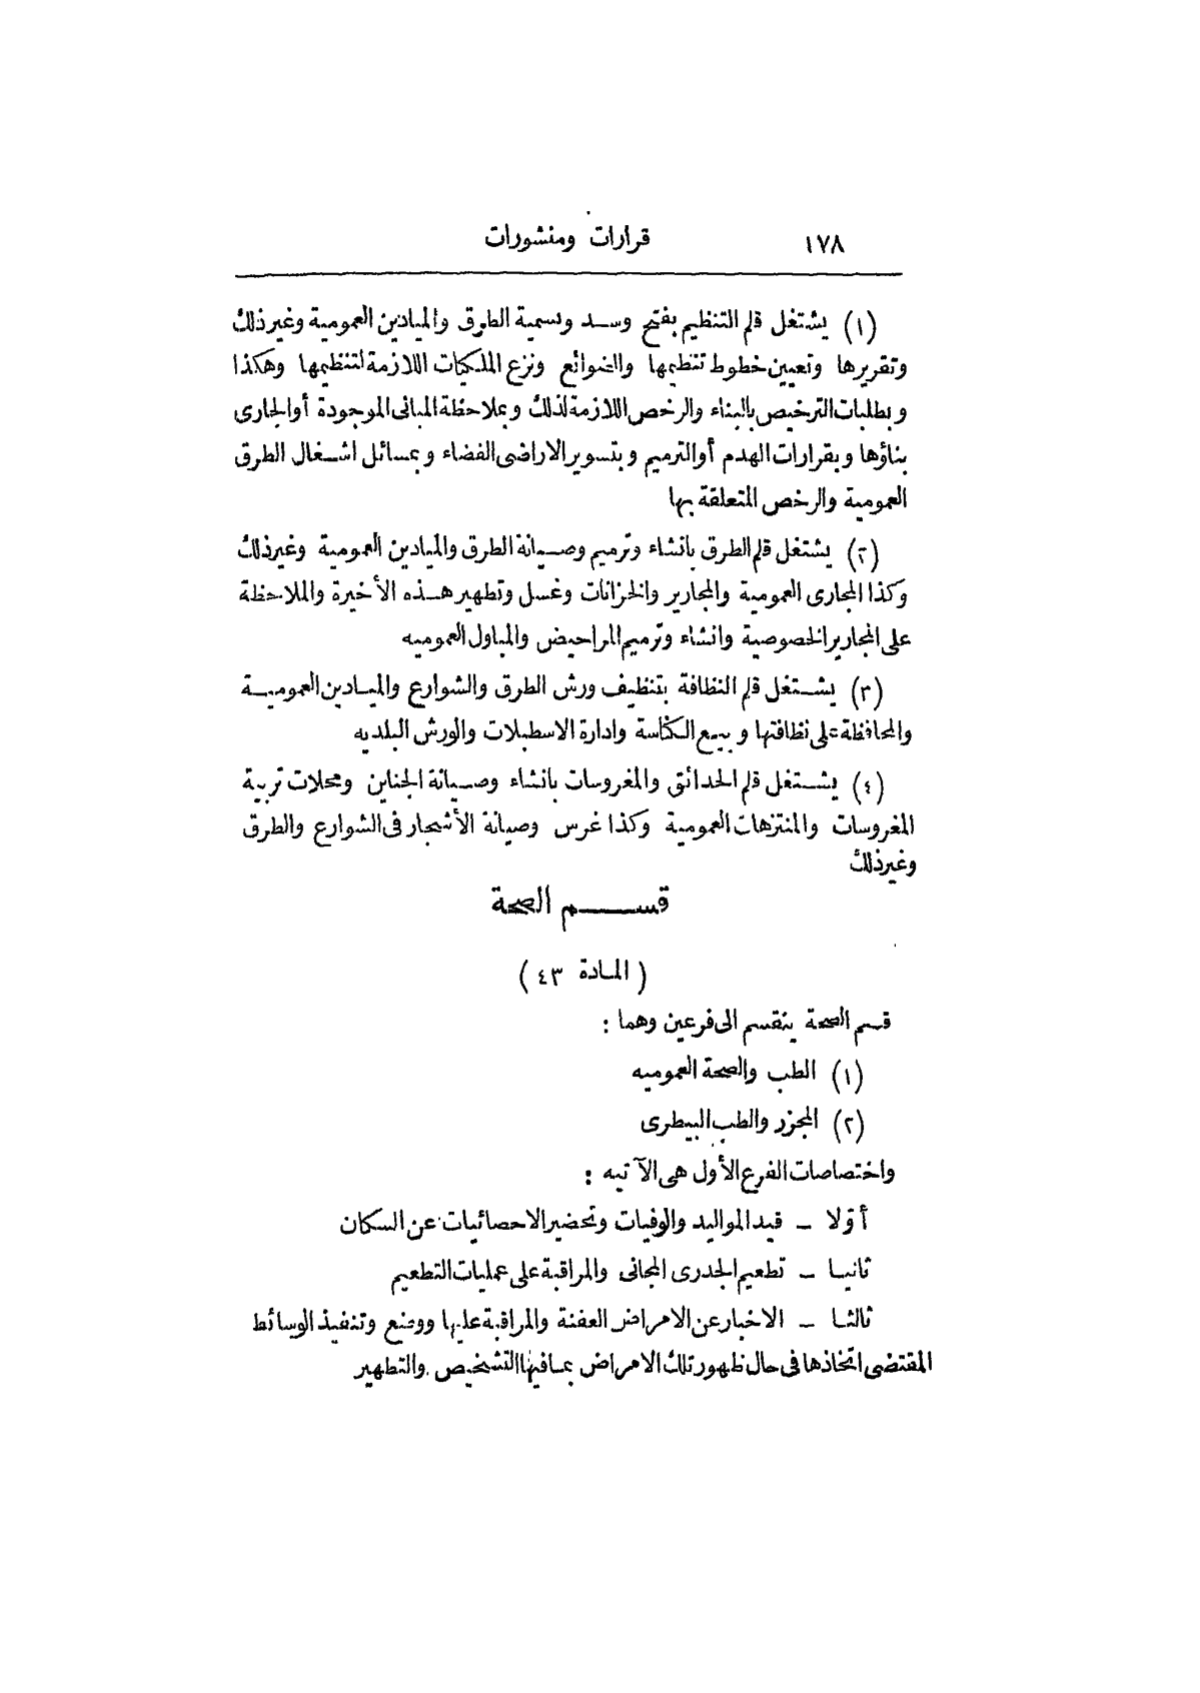 ١٧٨
قرارات ومنشورات
(١) يشتغل قلم التنظيم بفتح وسد وتسمية الطرق والميادين العمومية وغير ذلك
وتقريرها وتعيين خطوط تنظيمها والضوائع ونزع الملكيات اللازمة لتنظيمها وهكذا
وبطلبات الترخيص بالبناء والرخص اللازمة لذلك وبملاحظة المبانى الموجودة أو الجارى
بناؤها وبقرارات الهدم أو الترميم وبتسوير الاراضى الفضاء وبمسائل اشغال الطرق
العمومية والرخص المتعلقة بها
(٢) يشتغل قلم الطرق بانشاء وترميم وصيانة الطرق والميادين العمومية وغير ذلك
وكذا المجارى العمومية والمجارير والخزانات وغسل وتطهير هذه الأخيرة والملاحظة
على المجارير الخصوصية وانشاء وترميم المراحيض والمباول العموميه
(٣) يشتغل قلم النظافة بتنظيف ورش الطرق والشوارع والميادين العمومية
والمحافظة على نظافتها وبيع الكناسة وادارة الاسطبلات والورش البلديه
(٤) يشتغل قلم الحدائق والمغروسات بانشاء وصيانة الجناين ومحلات تربية
المغروسات والمنتزهات العمومية وكذا غرس وصيانة الأشجار فى الشوارع والطرق
وغير ذلك
قسم الصحة
(المادة ٤٣)
قسم الصحة ينقسم الى فرعين وهما :
(١) الطب والصحة العموميه
(٢) المجزر والطب البيطرى
واختصاصات الفرع الأول هى الآتيه :
أوّلا – قيد المواليد والوفيات وتحضير الاحصائيات عن السكان
ثانيا – تطعيم الجدرى المجانى والمراقبة على عمليات التطعيم
ثالثا – الاخبار عن الامراض العفنة والمراقبة عليها ووضع وتنفيذ الوسائط
المقتضى اتخاذها فى حال ظهور تلك الامراض بما فيها التشخيص والتطهير